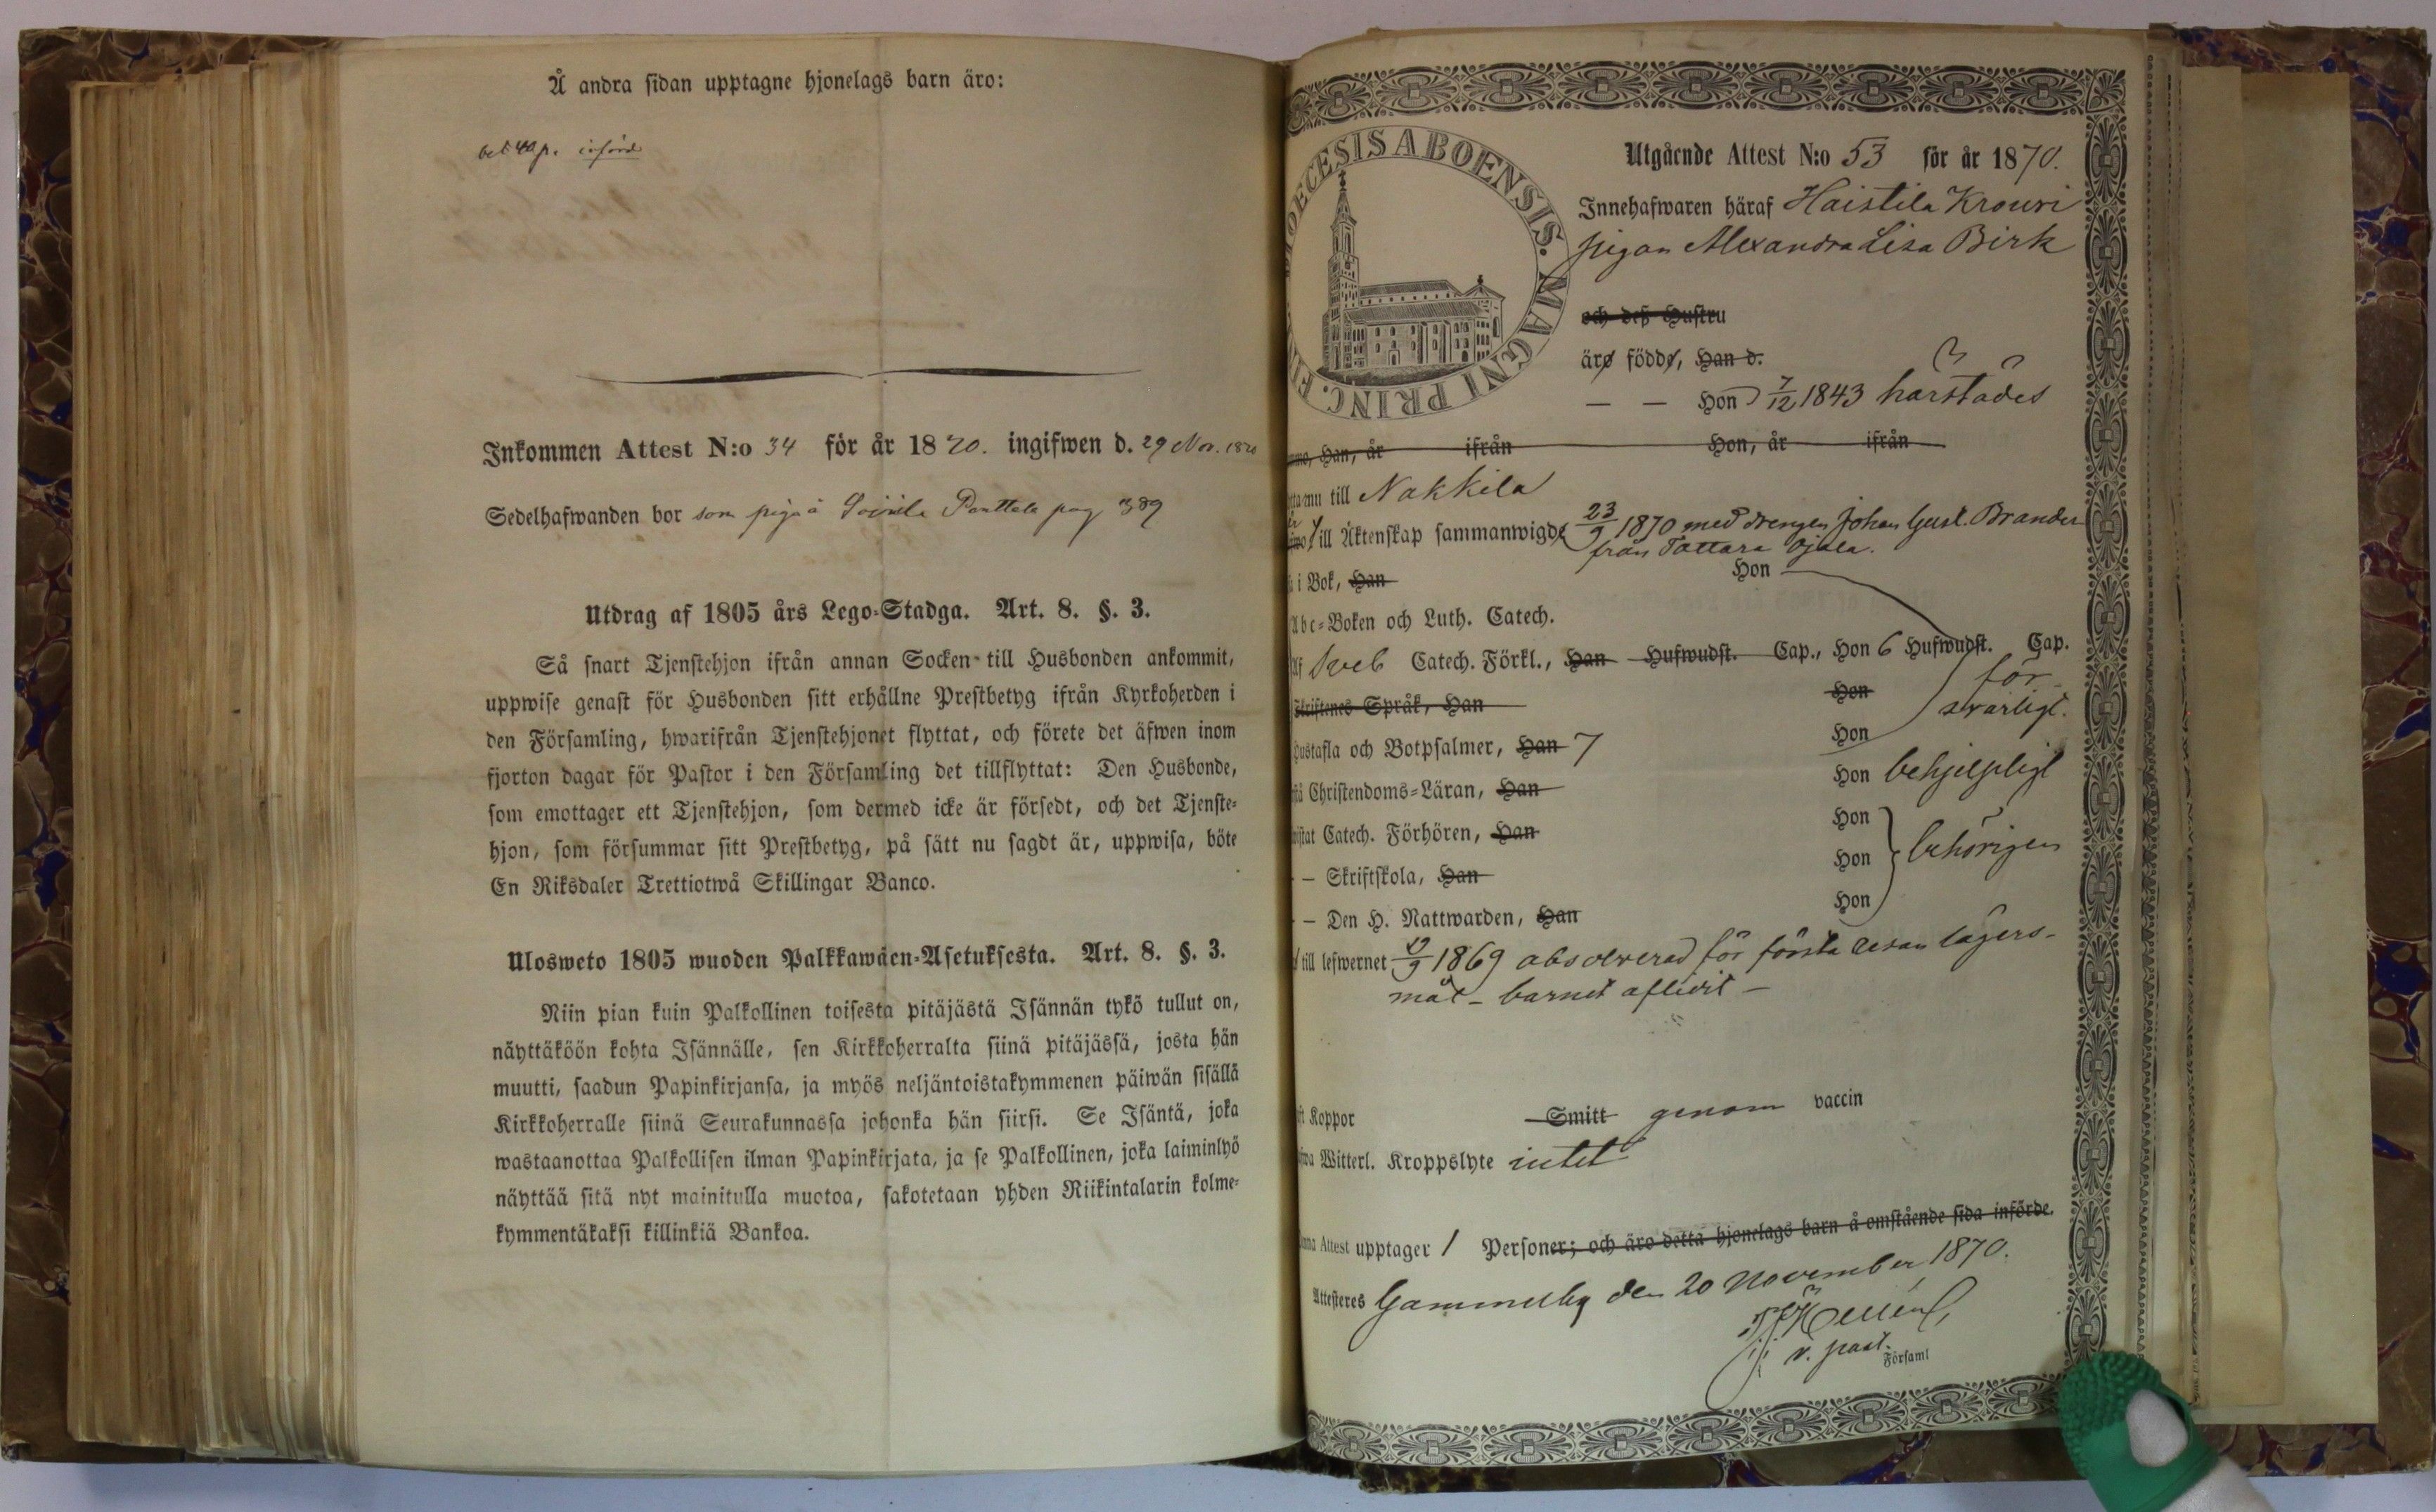 Å andra sidan upptagne hjonelags barn äro:
bet 40 p. införd
Inkommen Attest N:o 34 för år 1870. ingifwen d. 29 Nov. 1870
Sedelhafwanden bor som piga å Soinila Panttala pag 389
Utdrag af 1805 års Lego-Stadga. Art. 8. §. 3.
Så snart Tjenstehjon ifrån annan Socken till Husbonden ankommit,
uppwise genast för Husbonden sitt erhållne Prestbetyg ifrån Kyrkoherden i
den Församling, hwarifrån Tjenstehjonet flyttat, och förete det äfwen inom
fjorton dagar för Pastor i den Församling det tillflyttat: Den Husbonde,
som emottager ett Tjenstehjon, som dermed icke är försedt, och det Tjenste-
hjon, som försummar sitt Prestbetyg, på sätt nu sagdt är, uppwisa, böte
En Riksdaler Trettiotwå Skillingar Banco.
Ulosweto 1805 wuoden Palkkawäen-Asetuksesta. Art. 8. §. 3.
Niin pian kuin Palkollinen toisesta pitäjästä Isännän tykö tullut on,
näyttäköön kohta Isännälle, sen Kirkkoherralta siinä pitäjässä, josta hän
muutti, saadun Papinkirjansa, ja myös neljäntoistakymmenen päiwän sisällä
Kirkkoherralle siinä Seurakunnassa johonka hän siirsi. Se Isäntä, joka
wastaanottaa Palkollisen ilman Papinkirjata, ja se Palkollinen, joka laiminlyö
näyttää sitä nyt mainitulla muotoa, sakotetaan yhden Riikintalarin kolme-
kymmentäkaksi killinkiä Bankoa.
DIOECESIS ABOENSIS. MAGNI PRINC. FI
Utgående Attest N:o 53 för år 1870.
Innehafwaren häraf Haistila Krouvi
pigan Alexandra Lisa Birk
och deß Hustru
äro födde, Han d.
— — Hon d 7/12 1843 härstädes
Han, år ifrån Hon, år ifrån
nu till Nakkila
till Äktenskap sammanwigde 23/9 1870 med drengen Johan Gust. Brander
från Tattara Ojala.
i Bok, Han Hon
Abc-Boken och Luth. Catech.
Sveb Catech. Förkl., Han Hufwudst. Cap., Hon 6 Hufwudst. Cap.
Skriftenes Språk, Han Hon för-
svarligt.
Hustafla och Botpsalmer, Han 7 Hon
Christendoms-Läran, Han Hon behjelpligt
Catech. Förhören, Han Hon
— Skriftskola, Han Hon behörigen
— Den H. Nattwarden, Han Hon
till lefwernet 19/9 1869 absolverad för första resan lägers-
mål – barnet aflidit –
Koppor Smitt genom vaccin
Witterl. Kroppslyte intet
Attest upptager 1 Personer; och äro detta hjonelags barn å omstående sida införde.
Attesteres Gammelby den 20 November 1870.
v. past.
Församl